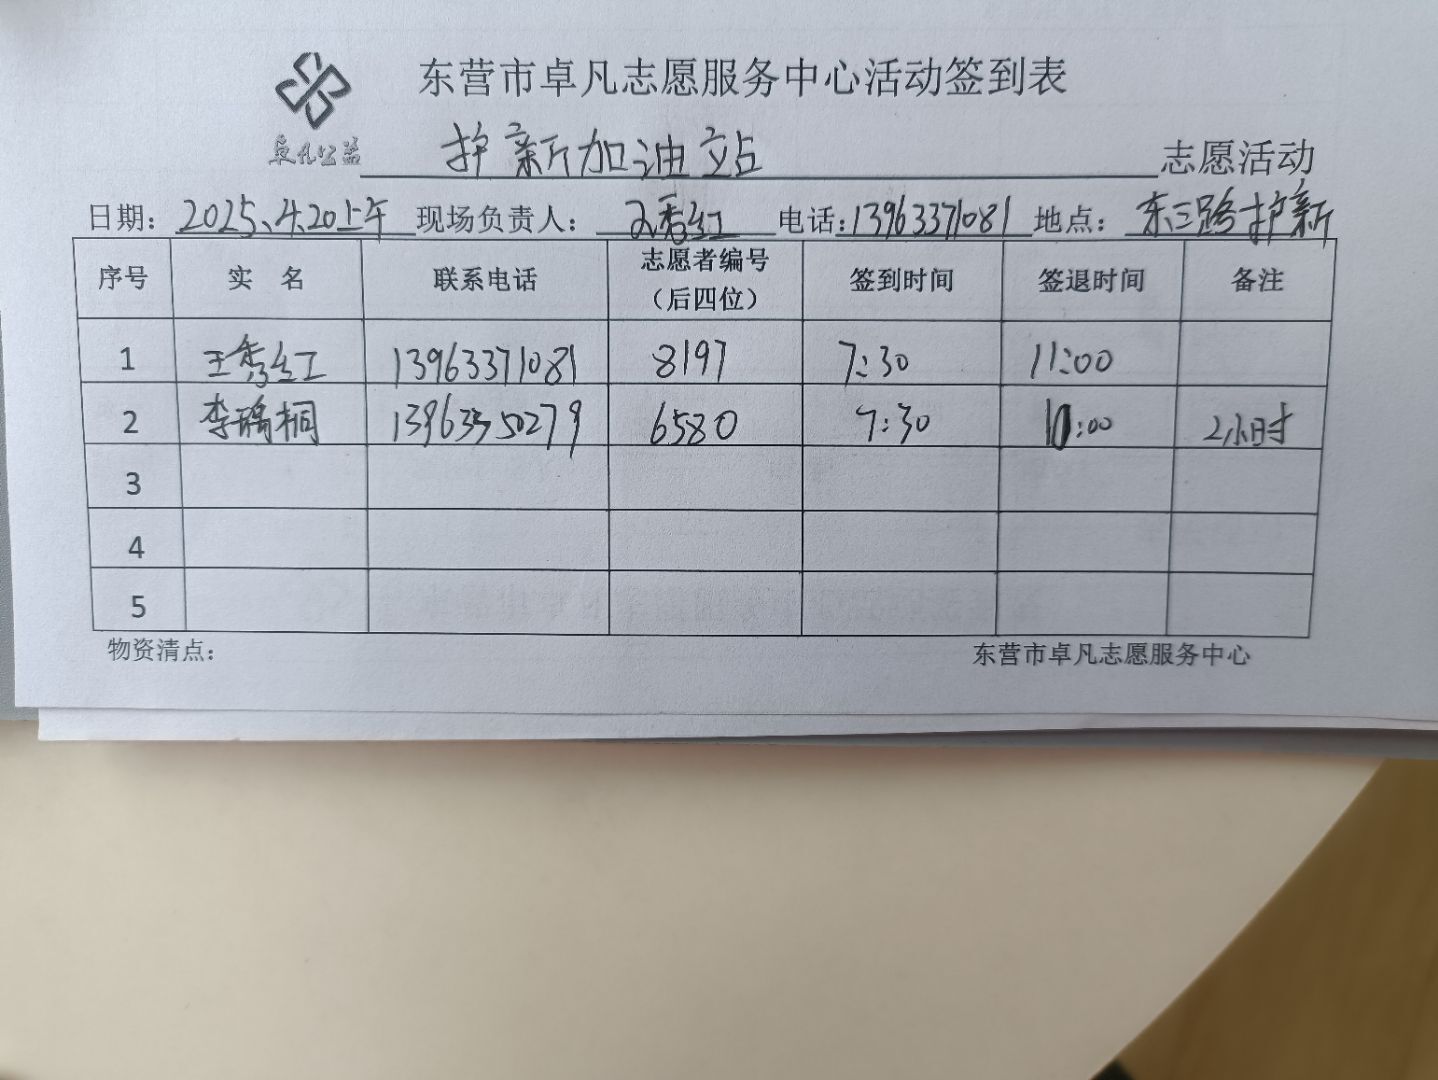 东营市卓凡志愿服务中心活动签到表
卓凡公益
护新加油站 志愿活动
日期：2025.4.20上午 现场负责人：王秀红 电话：13963371081 地点：东三路护新
序号 实 名 联系电话 志愿者编号（后四位） 签到时间 签退时间 备注
1 王秀红 13963371081 8197 7:30 11:00
2 李瑀桐 13963350279 6580 7:30 10:00 2小时
3
4
5
物资清点： 东营市卓凡志愿服务中心